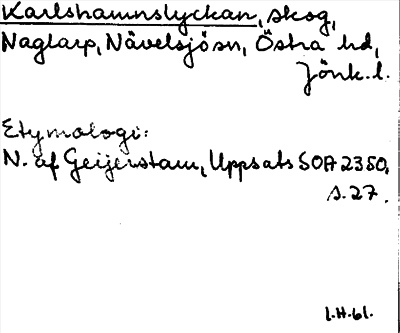 Karlshamnslyckan, skog,
Naglarp, Nävelsjösn, Östra hd,
Jönk. l.
Etymologi:
N. af Geijerstam, Uppsats SOA 2350,
s. 27.
I.H.61.